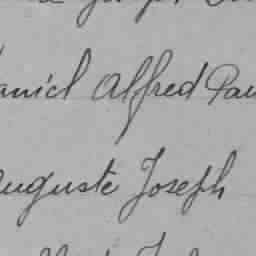 Daniel Alfred Pau
Auguste Joseph